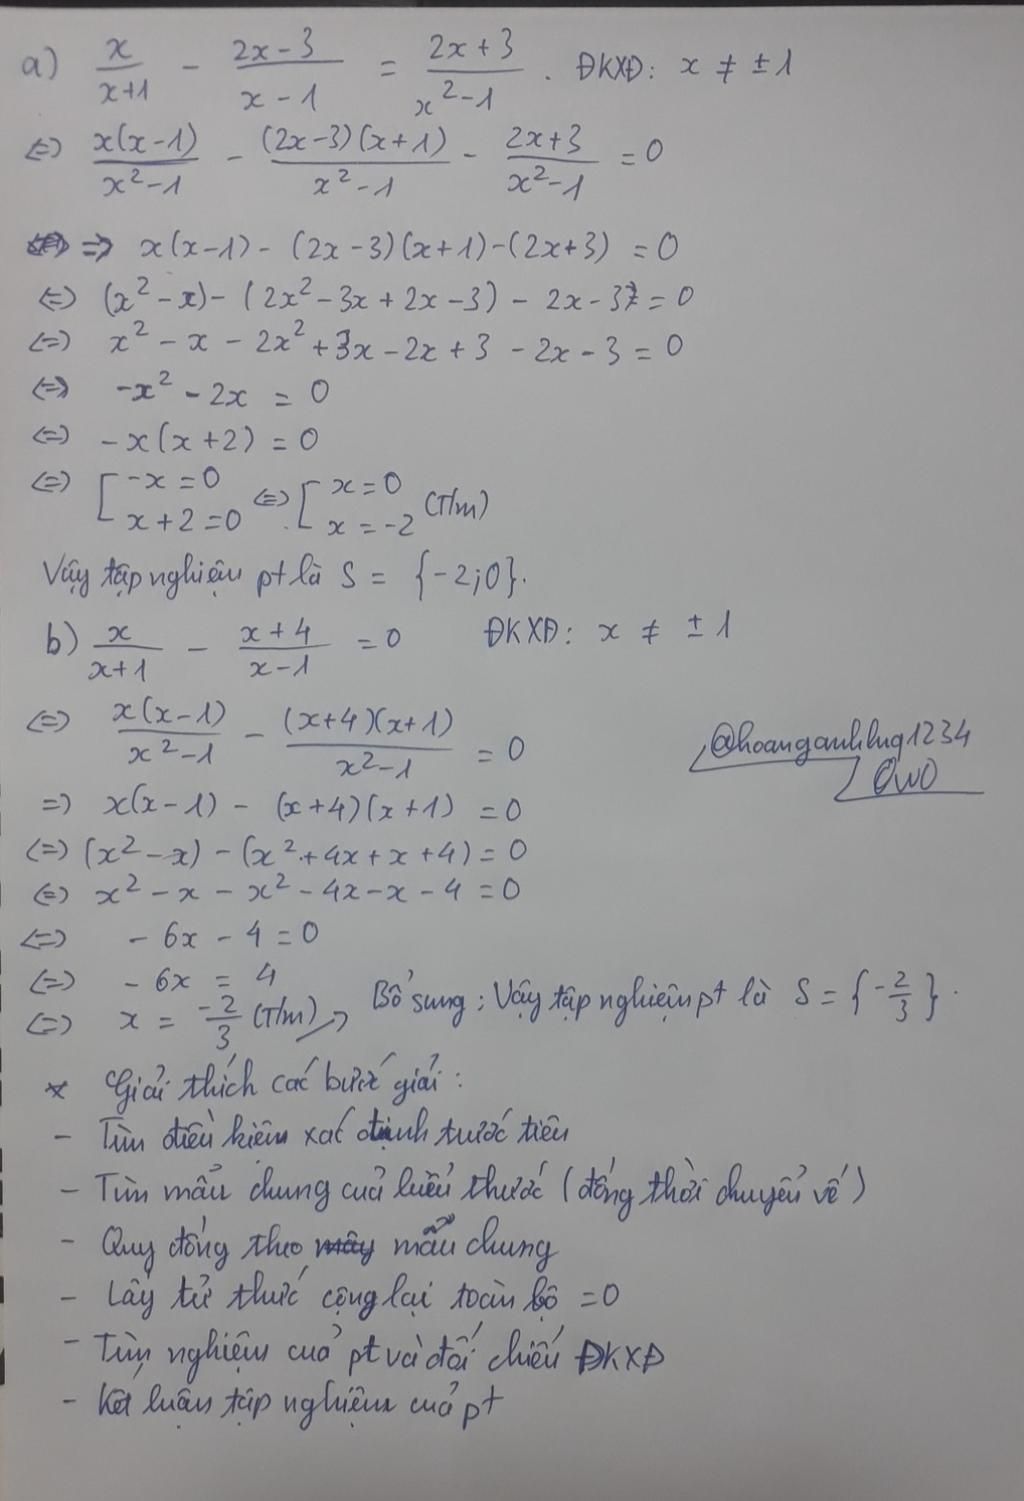 a) x/(x+1) - (2x-3)/(x-1) = (2x+3)/(x²-1). ĐKXĐ: x ≠ ±1
⇔ x(x-1)/(x²-1) - (2x-3)(x+1)/(x²-1) - (2x+3)/(x²-1) = 0
⇒ x(x-1) - (2x-3)(x+1)-(2x+3) = 0
⇔ (x²-x) - (2x²-3x+2x-3) - 2x-3 = 0
⇔ x² - x - 2x² + 3x - 2x + 3 - 2x - 3 = 0
⇔ -x² - 2x = 0
⇔ -x(x+2) = 0
⇔ [ -x = 0 ; x+2 = 0 ⇔ [ x = 0 ; x = -2 (T/m)
Vậy tập nghiệm pt là S = {-2;0}.
b) x/(x+1) - (x+4)/(x-1) = 0 ĐKXĐ: x ≠ ±1
⇔ x(x-1)/(x²-1) - (x+4)(x+1)/(x²-1) = 0
@hoanganhlug1234
OwO
⇒ x(x-1) - (x+4)(x+1) = 0
⇔ (x²-x) - (x²+4x+x+4) = 0
⇔ x² - x - x² - 4x - x - 4 = 0
⇔ - 6x - 4 = 0
⇔ - 6x = 4
⇔ x = -2/3 (T/m) → Bổ sung: Vậy tập nghiệm pt là S = {-2/3}.
* Giải thích các bước giải:
- Tìm điều kiện xác định trước tiên
- Tìm mẫu chung của biểu thức (đồng thời chuyển vế)
- Quy đồng theo mẫu chung
- Lấy tử thức cộng lại toàn bộ = 0
- Tìm nghiệm của pt và đối chiếu ĐKXĐ
- Kết luận tập nghiệm của pt